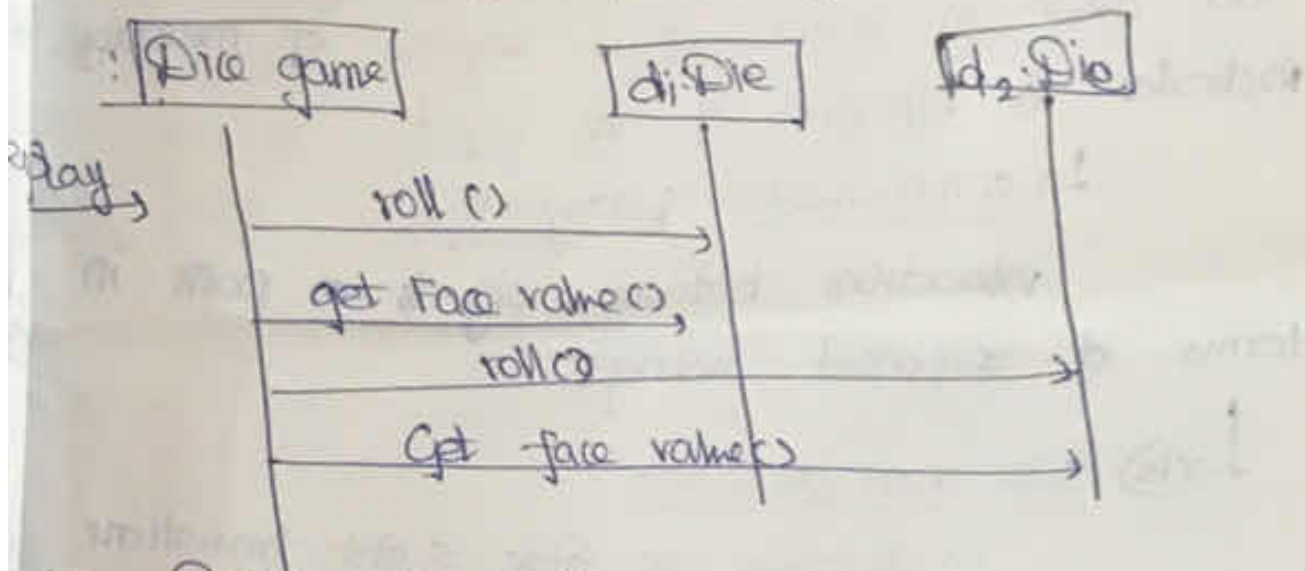 : Dice game d1:Die d2:Die
play
roll ()
get Face value()
roll()
Get face value()